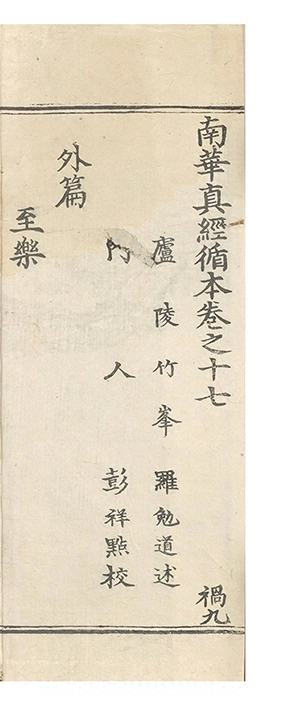 南華真經循本卷之十七　禍九
廬陵竹峯羅勉道述
門人彭祥點校
外篇
至樂